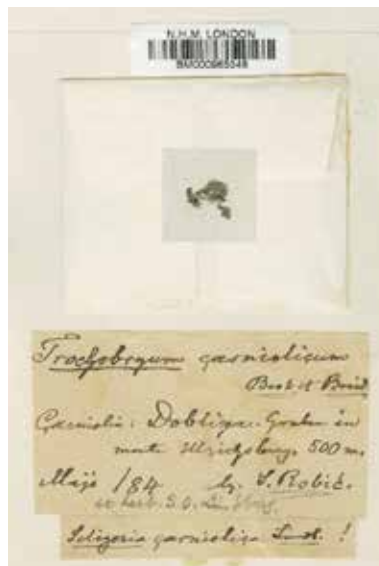 N.H.M. LONDON
BM000965048
Trochobryum carniolicum
Breidl et
Carniolia: Dobliza-Graben in
monte Ulrichsberg. 500 m.
Majo /84 lg. S. Robič.
ex herb. S. O.
Seligeria carniolica !